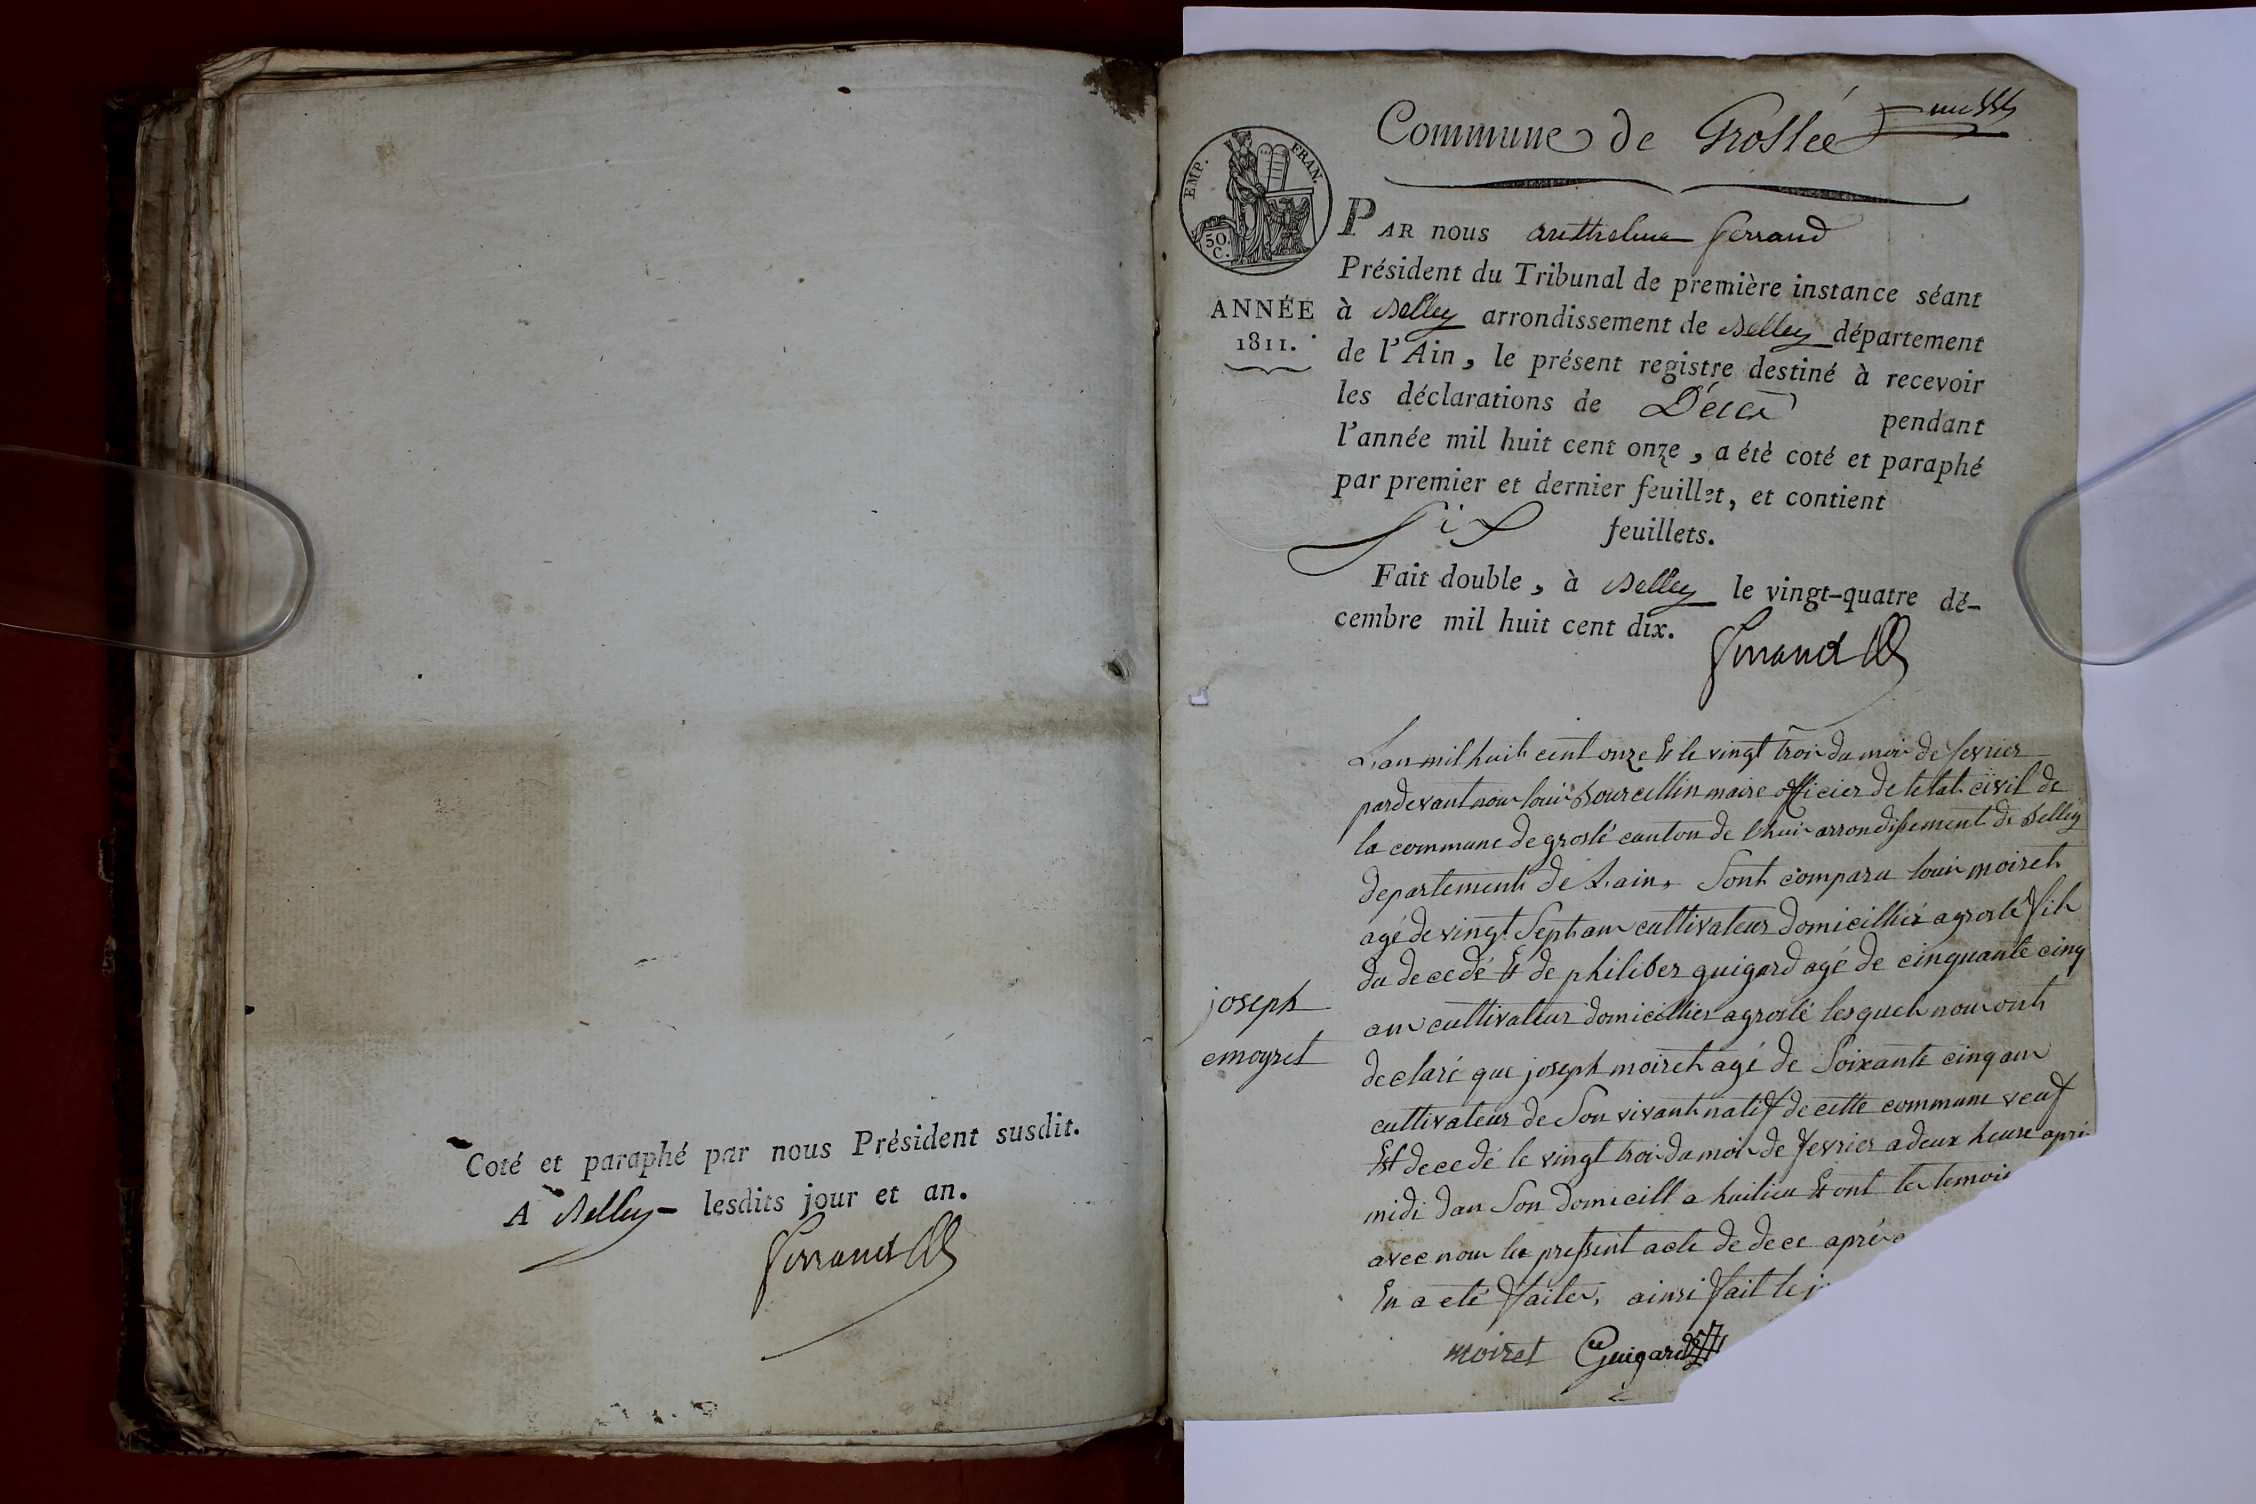 Coté et paraphé par nous Président susdit.
A Belley lesdits jour et an.
Ferrand
Commune de Groslée
EMP. FRAN.
50.
C.
ANNÉE
1811.
PAR nous anthelme ferrand
Président du Tribunal de première instance séant
à Belley arrondissement de Belley département
de l'Ain, le présent registre destiné à recevoir
les déclarations de Décès pendant
l'année mil huit cent onze, a été coté et paraphé
par premier et dernier feuillet, et contient
Six feuillets.
Fait double, à Belley le vingt-quatre dé-
cembre mil huit cent dix.
ferrand
L'an mil huit cent onze Et le vingt trois du mois de fevrier
pardevant nous louis Bourcellin maire officier de letat civil de
la commune de groslé canton de lhuis arrondissement de Belley
departement de L'ain. Sont comparu louis moiret
agé de vingt Sept ans cultivateur domicillier a groslé fils
du decedé Et de philiber guigard agé de cinquante cinq
ans cultivateur domicillier a groslé lesquels nous ont
declaré que joseph moiret agé de Soixante cinq ans
cultivateur de Son vivant natif de cette commune veuf
Est decedé le vingt trois du mois de fevrier a deux heure aprè
midi dans Son domicill a huilieu Et ont les temoi
avec nous le present acte de dece aprés
En a eté faite, ainsi fait le j
joseph
emoyret
moiret Guigard